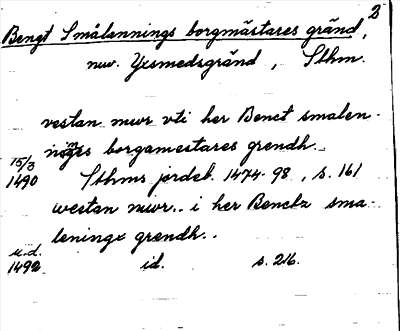 2
Bengt Smålännings borgmästares gränd,
nuv. Yxsmedsgränd, Sthm.
vestan mwr vti her Benct smalen-
ninges borgamestares grendh.
15/3
1490 Sthms jordeb. 1474-98, s. 161
westan mwr.. i her Benctz sma-
leningx grendh..
u.d.
1492 id. s. 216.